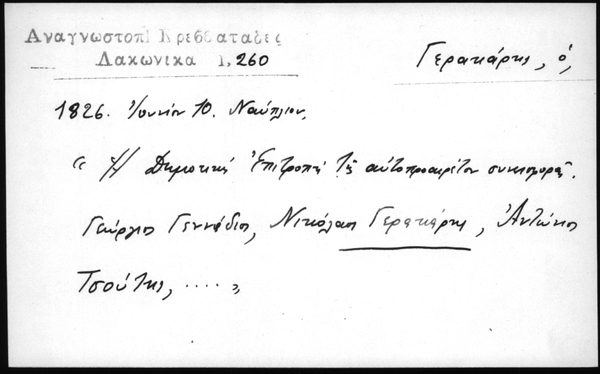 Αναγνωστοπ. Κρεββαταδες
Λακωνικα 1, 260
Γερακάρης, ὁ,
1826. Ἰουνίου 10. Ναύπλιον.
" Ἡ Δημοτικὴ Ἐπιτροπὴ τῆς αὐτοπροαιρέτου συνεισφορᾶς.
Γεώργιος Γεννάδιος, Νικόλαος Γερακάρης, Ἀντώνιος
Τσούτης, ..... "